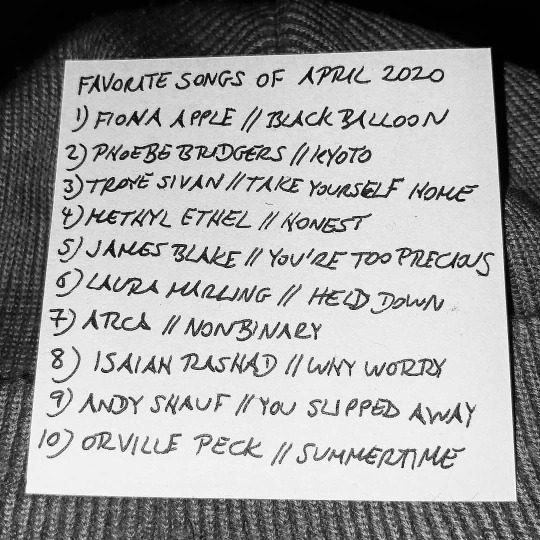 FAVORITE SONGS OF APRIL 2020
1) FIONA APPLE // BLACK BALLOON
2) PHOEBE BRIDGERS // KYOTO
3) TROYE SIVAN // TAKE YOURSELF HOME
4) METHYL ETHEL // HONEST
5) JAMES BLAKE // YOU'RE TOO PRECIOUS
6) LAURA MARLING // HELD DOWN
7) ARCA // NONBINARY
8) ISAIAH RASHAD // WHY WORRY
9) ANDY SHAUF // YOU SLIPPED AWAY
10) ORVILLE PECK // SUMMERTIME